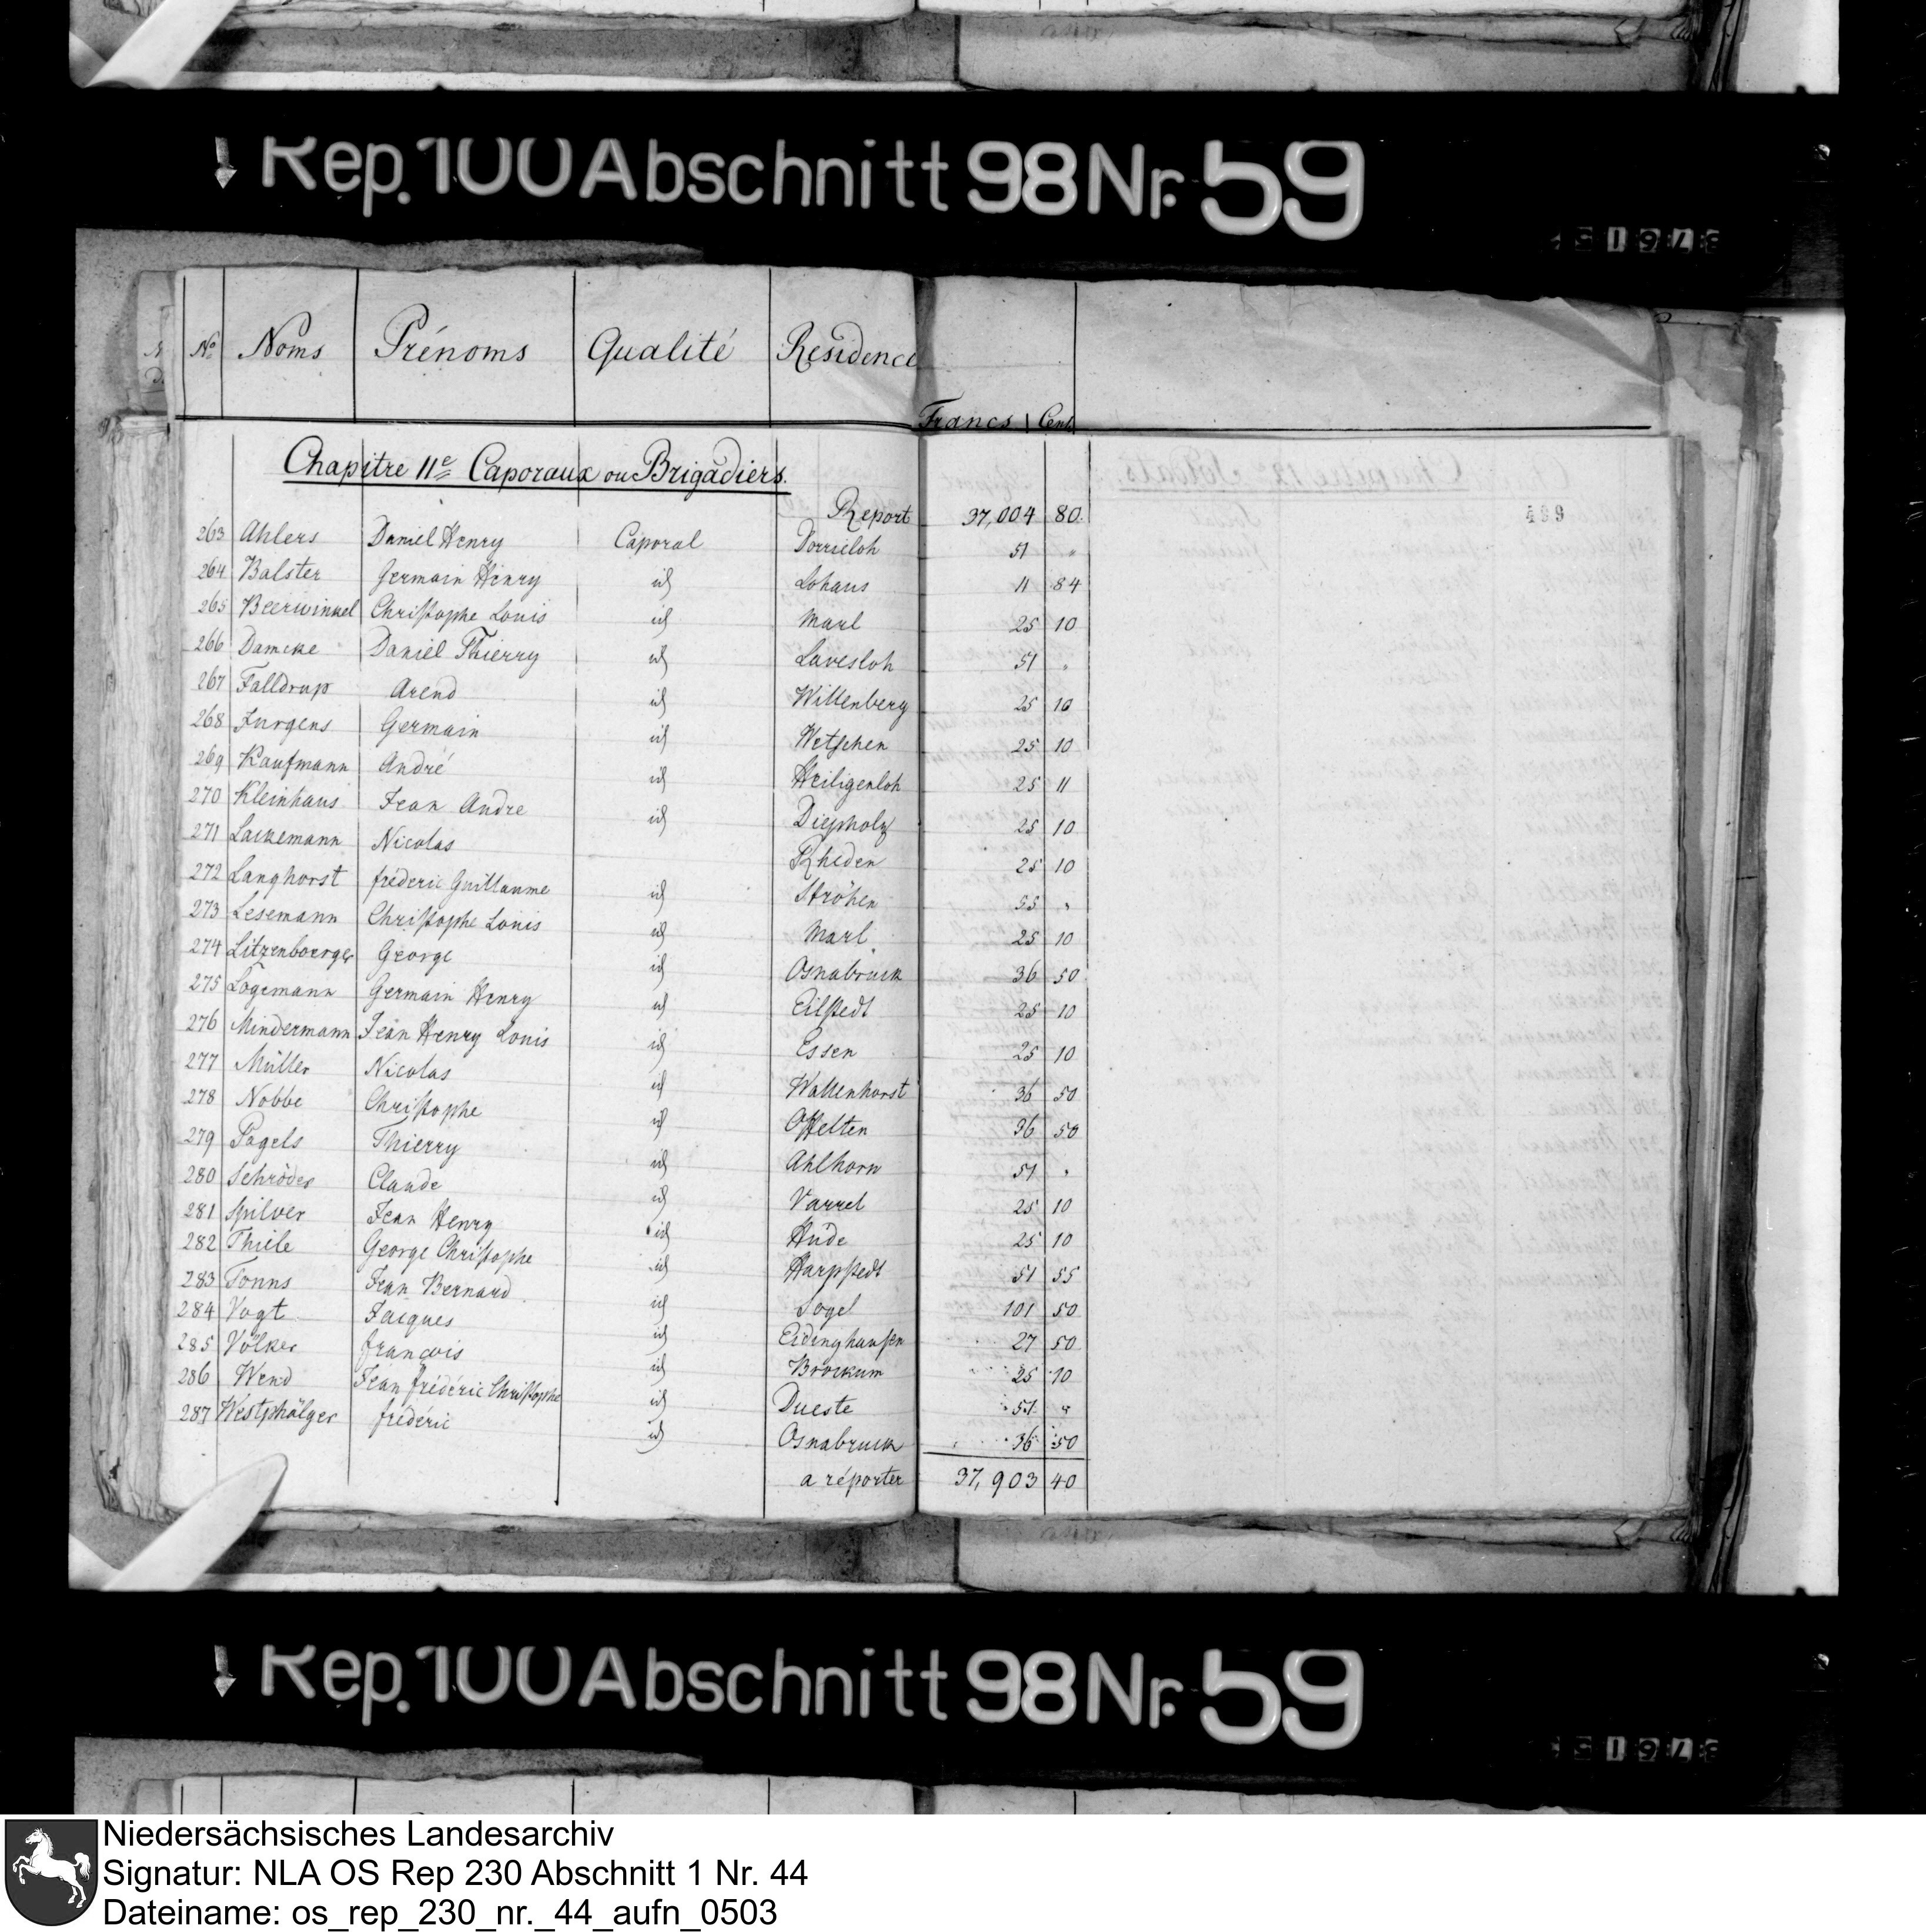 Rep. 100 Abschnitt 98 Nr. 59
No Noms Prénoms Qualité Residence
Francs Cent
Chapitre 11e Caporaux ou Brigadiers.
Report 37,004 80
499
263 Ahlers Daniel Henry Caporal Dorrieloh 51 "
264 Balster Germain Henry id Lohaus 11 84
265 Beerwinkel Christophe Louis id Marl 25 10
266 Damcke Daniel Thierry id Lavesloh 51 "
267 Falldrup Arend id Wittenberg 25 10
268 Jurgens Germain id Wetschen 25 10
269 Kaufmann André id Heiligenloh 25 11
270 Kleinhaus Jean Andre id Diepholz 25 10
271 Lackemann Nicolas Rheden 25 10
272 Langhorst frederic Guillaume id Ströhen 55 "
273 Lesemann Christophe Louis id Marl 25 10
274 Litzenboerger George id Osnabruck 36 50
275 Logemann Germain Henry id Eilstedt 25 10
276 Mindermann Jean Henry Louis id Essen 25 10
277 Müller Nicolas id Wallenhorst 36 50
278 Nobbe Christophe id Offelten 36 50
279 Pagels Thierry id Ahlhorn 51 "
280 Schröder Claude id Varrel 25 10
281 Spilver Jean Henry id Hude 25 10
282 Thiele George Christophe id Harpstedt 51 55
283 Tonns Jean Bernard id Sogel 101 50
284 Vogt Jacques id Eidinghausen 27 50
285 Völker françois id Brockum 25 10
286 Wend Jean frédéric Christophe id Dueste 51 "
287 Westphälger frédéric id Osnabruck 36 50
a réporter 37,903 40
Rep. 100 Abschnitt 98 Nr. 59
Niedersächsisches Landesarchiv
Signatur: NLA OS Rep 230 Abschnitt 1 Nr. 44
Dateiname: os_rep_230_nr._44_aufn_0503